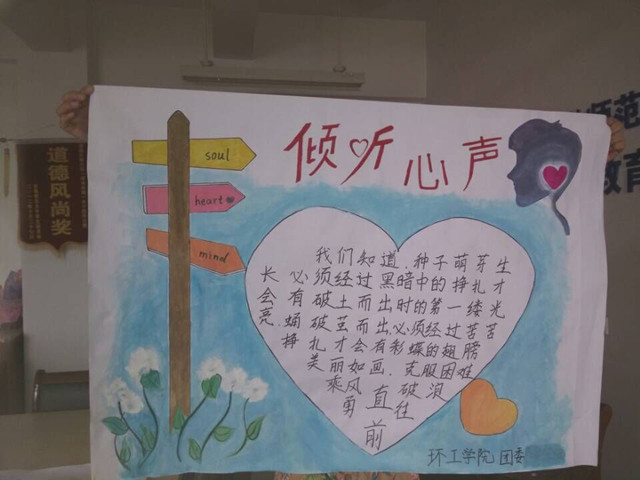 倾听心声
soul
heart
mind
我们知道,种子萌芽生
长必须经过黑暗中的挣扎才
会有破土而出时的第一缕光
亮.蛹破茧而出必须经过苦苦
挣扎才会有彩蝶的翅膀
美丽如画.克服困难
乘风破浪
勇往直
前
环工学院团委
道德风尚奖
师范
教育